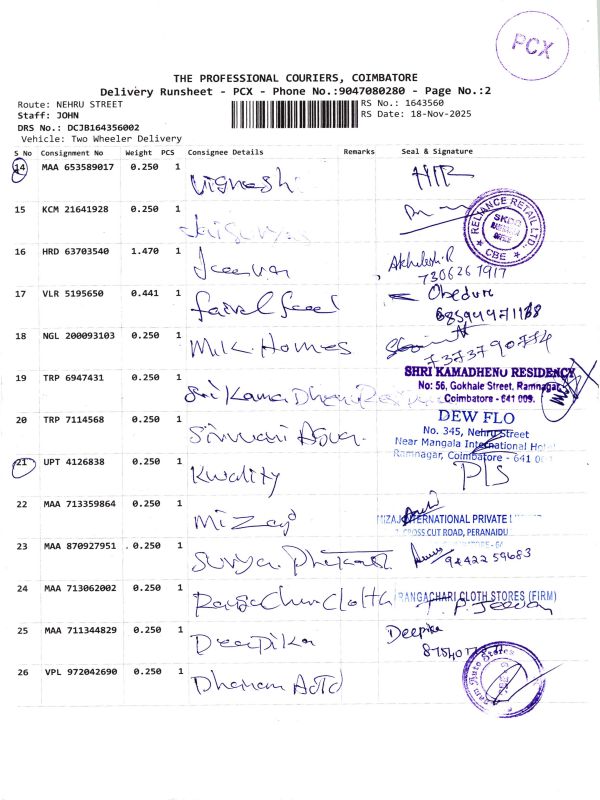 PCX
THE PROFESSIONAL COURIERS, COIMBATORE
Delivery Runsheet - PCX - Phone No.:9047080280 - Page No.:2
Route: NEHRU STREET
RS No.: 1643560
Staff: JOHN
RS Date: 18-Nov-2025
DRS No.: DCJB164356002
Vehicle: Two Wheeler Delivery
S No Consignment No Weight PCS Consignee Details Remarks Seal & Signature
14 MAA 653589017 0.250 1 Vignesh
15 KCM 21641928 0.250 1 RELIANCE RETAIL LTD CBE
16 HRD 63703540 1.470 1 Jeevan Akhilesh.R
7306267917
17 VLR 5195650 0.441 1
18 NGL 200093103 0.250 1 M.K. Homes
7373790774
19 TRP 6947431 0.250 1 Sri Kama Dhenu SHRI KAMADHENU RESIDENCY
No: 56, Gokhale Street, Ramnagar
Coimbatore - 641 009.
20 TRP 7114568 0.250 1 DEW FLO
No. 345, Nehru Street
Near Mangala International Hotel
Ramnagar, Coimbatore - 641
21 UPT 4126838 0.250 1 Kwality
22 MAA 713359864 0.250 1 Mizaj MIZAJ INTERNATIONAL PRIVATE
CROSS CUT ROAD, PERANAIDU
23 MAA 870927951 0.250 1 Surya 9842259683
24 MAA 713062002 0.250 1 RangaChari Cloth RANGACHARI CLOTH STORES (FIRM)
T. P. Jeevan
25 MAA 711344829 0.250 1 Deepika Deepika
26 VPL 972042690 0.250 1 Dhanam Auto Auto Stores